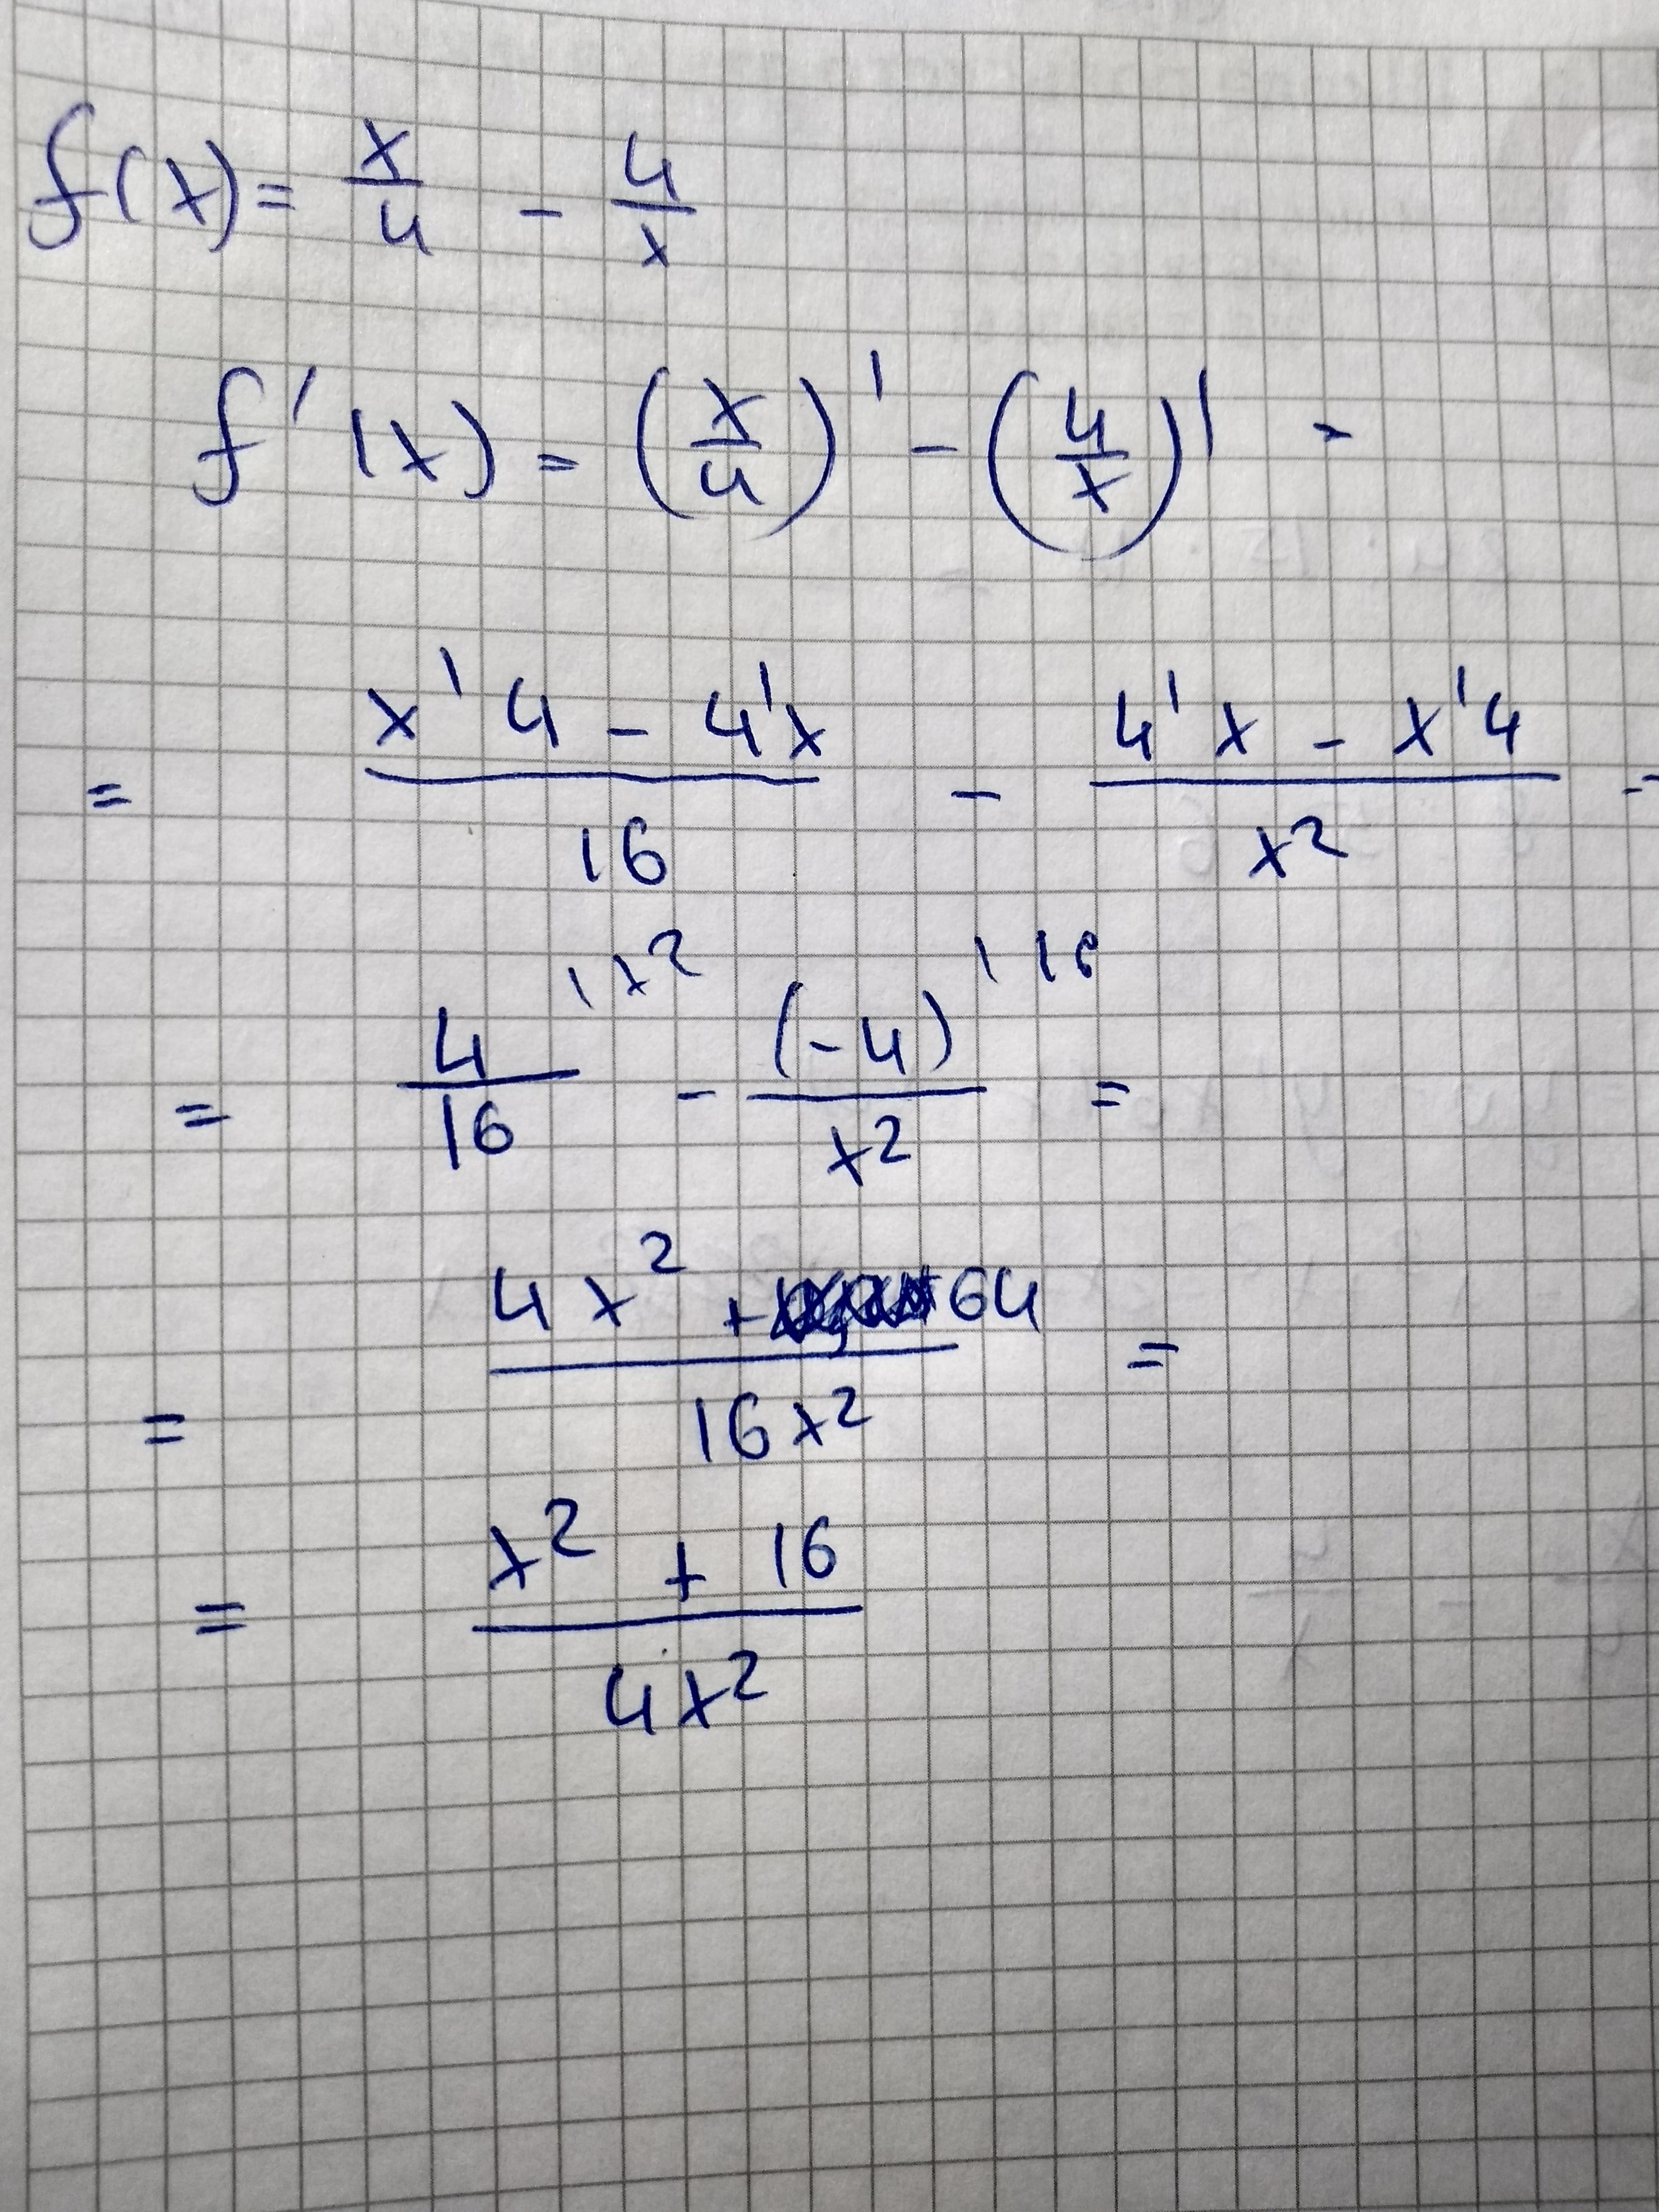 f(x) = x/4 - 4/x
f'(x) = (x/4)' - (4/x)' =
= (x'4 - 4'x)/16 - (4'x - x'4)/x² =
= 4/16 ^{|x²} - (-4)/x² ^{|16} =
= (4x² + 64)/16x² =
= (x² + 16)/4x²